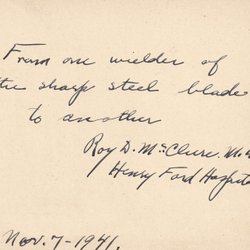 From one wielder of
the sharp steel blade
to another
Roy D. McClure. M.
Henry Ford Hospita
Nov. 7-1941.